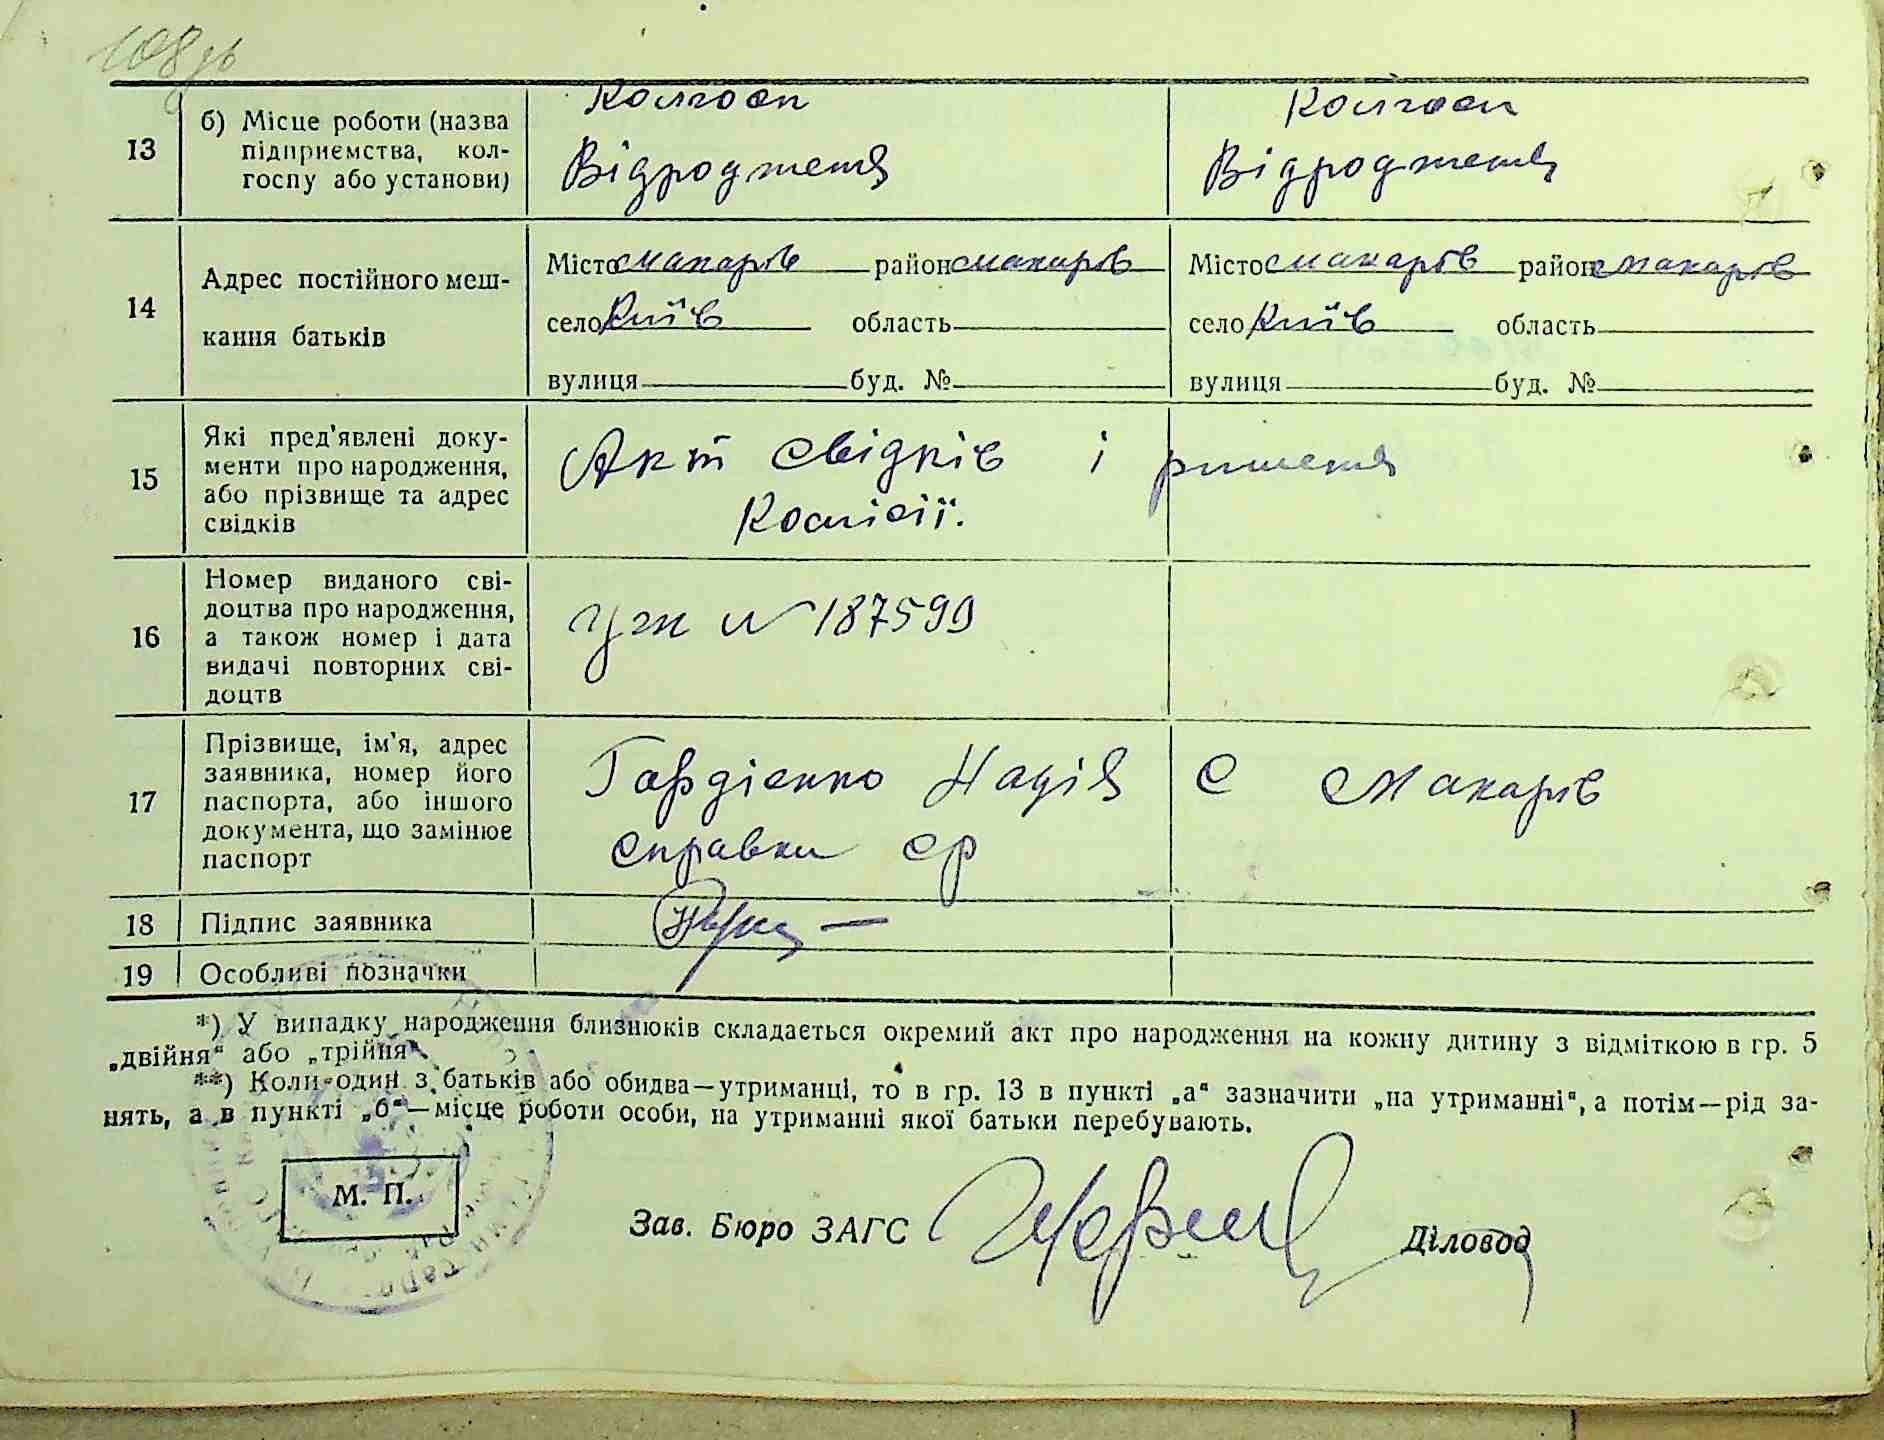 108зв
13 б) Місце роботи (назва підприємства, колгоспу або установи) Колгосп Відродження Колгосп Відродження
14 Адрес постійного мешкання батьків
Місто Макарів район Макарів Місто Макарів район Макарів
село Київ область село Київ область
вулиця буд. № вулиця буд. №
15 Які пред'явлені документи про народження, або прізвище та адрес свідків
Акт свідків і ришення
Комісії.
16 Номер виданого свідоцтва про народження, а також номер і дата видачі повторних свідоцтв
№ 187599
17 Прізвище, ім'я, адрес заявника, номер його паспорта, або іншого документа, що замінює паспорт
Гордієнко Надія С Макарів
справки ср
18 Підпис заявника
19 Особливі позначки
*) У випадку народження близнюків складається окремий акт про народження на кожну дитину з відміткою в гр. 5
„двійня“ або „трійня“.
**) Коли один з батьків або обидва—утриманці, то в гр. 13 в пункті „а“ зазначити „на утриманні“, а потім—рід за-
нять, а в пункті „б“—місце роботи особи, на утриманні якої батьки перебувають.
М. П.
Зав. Бюро ЗАГС Діловод